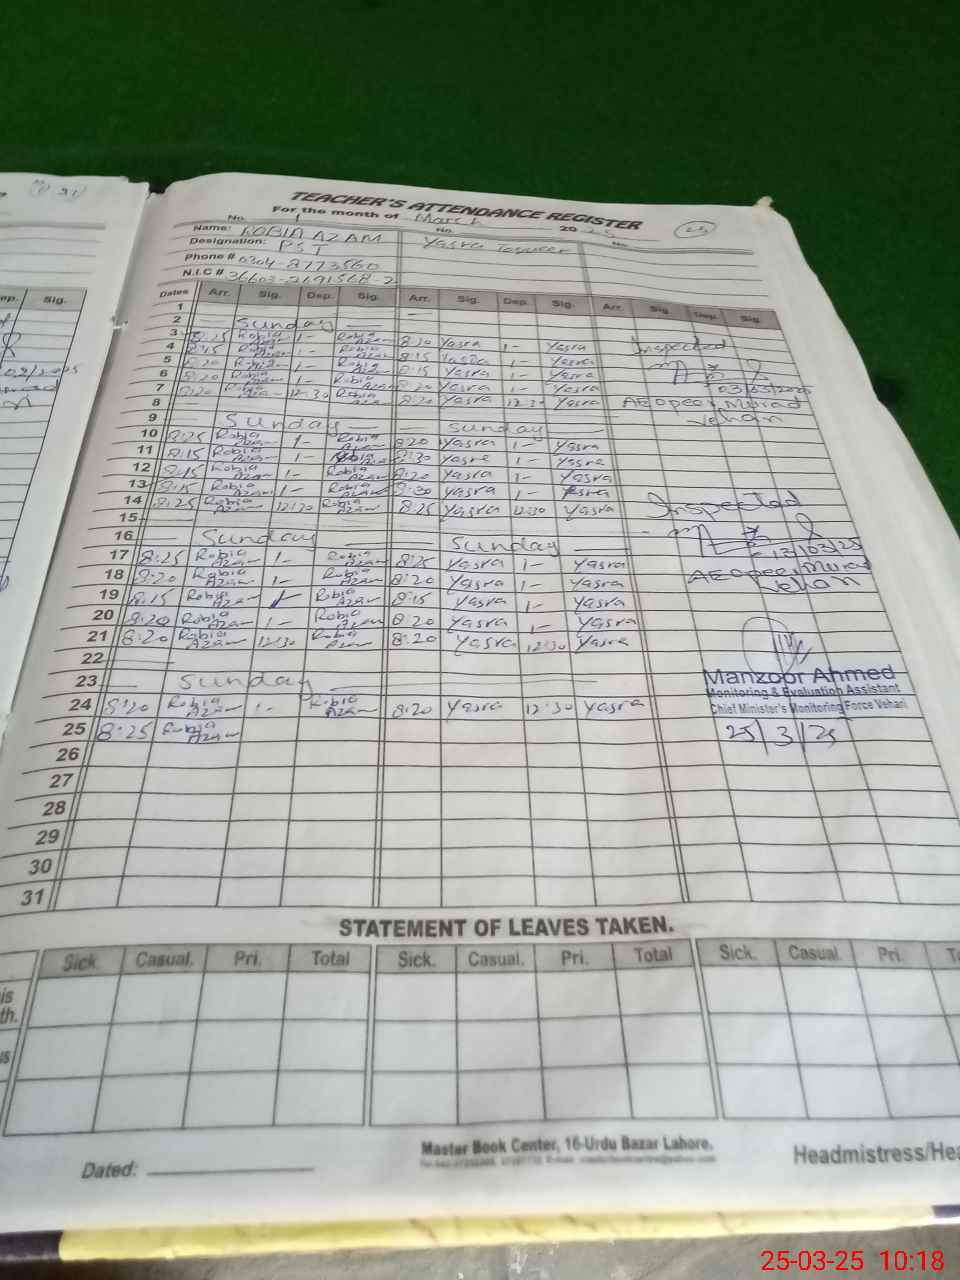 TEACHER'S ATTENDANCE REGISTER
For the month of March 2025
25
No. 1 No. No.
Name: ROBIA AZAM Yasra
Designation: PST
Phone # 0304-8773560
N.I.C # 36603-2191568-2
Dates Arr. Sig. Dep. Sig. Arr. Sig. Dep. Sig. Arr. Sig. Dep. Sig.
1
2 Sunday
3 8:25 Robia Azam 1- Robia Azam 8:20 Yasra 1- Yasra Inspected
4 8:15 Robia Azam 1- Robia Azam 8:15 Yasra 1- Yasra
5 8:20 Robia Azam 1- Robia Azam 8:15 Yasra 1- Yasra 03/03/2025
6 8:20 Robia Azam 1- Robia Azam 8:20 Yasra 1- Yasra
7 8:20 Robia Azam 12:30 Robia Azam 8:20 Yasra 12:30 Yasra
8
9 Sunday Sunday
10 8:25 Robia Azam 1- Robia Azam 8:20 Yasra 1- Yasra
11 8:15 Robia Azam 1- Robia Azam 8:30 Yasre 1- Yasra
12 8:15 Robia Azam 1- Robia Azam 8:20 Yasra 1- Yasra
13 8:15 Robia Azam 1- Robia Azam 8:30 Yasra 1- Yasra Inspected
14 8:25 Robia Azam 12:30 Robia Azam 8:25 Yasra 12:30 Yasra
15
16 Sunday Sunday 13/03/25
17 8:25 Robia Azam 1- Robia Azam 8:25 Yasra 1- Yasra
18 8:20 Robia Azam 1- Robia Azam 8:20 Yasra 1- Yasra
19 8:15 Robia Azam Robia Azam 8:15 Yasra 1- Yasra
20 8:20 Robia Azam 1- Robia Azam 8:20 Yasra 1- Yasra
21 8:20 Robia Azam 12:30 Robia Azam 8:20 Yasra 12:30 Yasra
22
23 Sunday
24 8:20 Robia Azam 1- Robia Azam 8:20 Yasra 12:30 Yasra
25 8:25 Robia Azam
Manzoor Ahmed
Monitoring & Evaluation Assistant
Chief Minister's Monitoring Force Vehari
25/3/25
26
27
28
29
30
31
STATEMENT OF LEAVES TAKEN.
Sick Casual. Pri. Total Sick. Casual. Pri. Total Sick. Casual. Pri.
Master Book Center, 16-Urdu Bazar Lahore.
Dated:
Headmistress/Hea
25-03-25 10:18